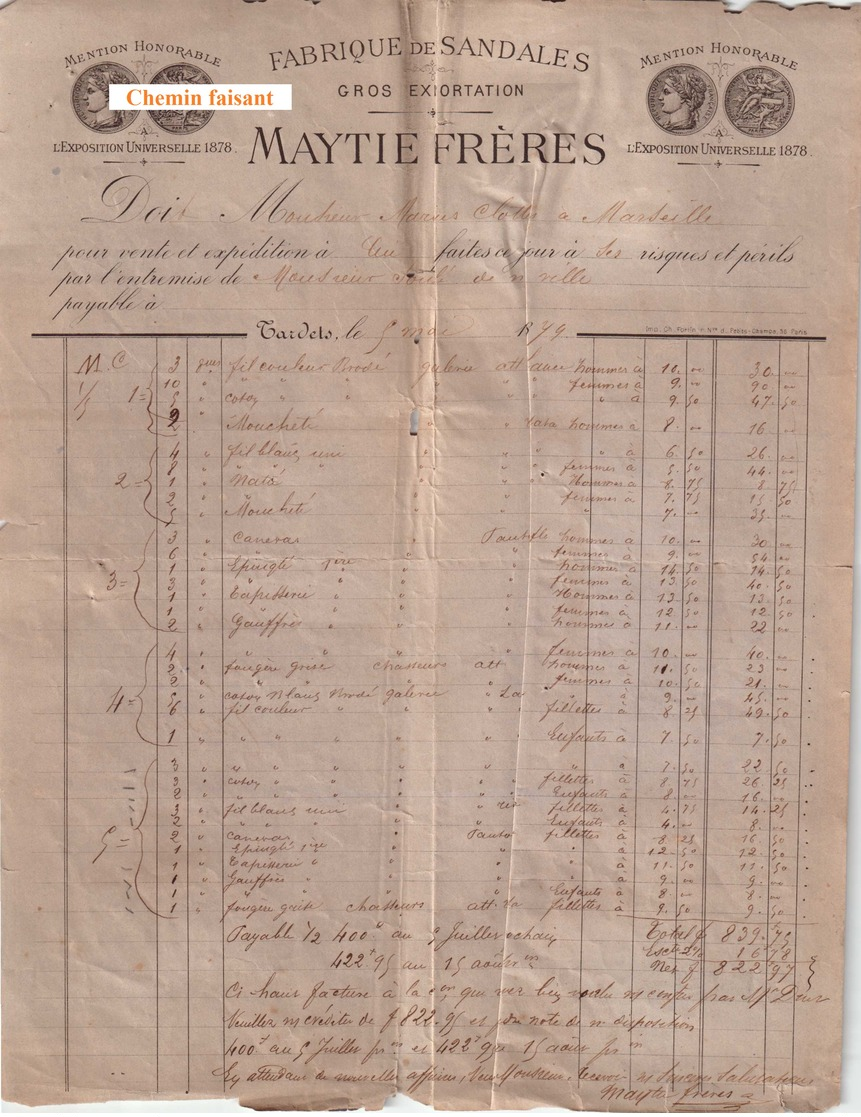 MENTION HONORABLE
A
L'EXPOSITION UNIVERSELLE 1878.
Chemin faisant
FABRIQUE DE SANDALES
GROS EXIORTATION
MAYTIE FRÈRES
MENTION HONORABLE
A
L'EXPOSITION UNIVERSELLE 1878.
Doit Monsieur a Marseille
pour vente et expédition à lui faites ce jour à ses risques et périls
par l'entremise de Monsieur de n ville
payable à
Tardets, le 5 mai 1879
Imp. Ch. Fortin r. Nve d. Petits-Champs, 36 Paris
M. C 3 fil couleur Brodé galerie att hommes à 10. " 30. "
1/5 1= 10 " " " " femmes à 9. " 90 "
5 " coton " " " " à 9. 50 47. 50
2 " Moucheté " hommes à 8. " 16 "
4 " fil blanc uni " " " à 6. 50 26. "
2= 8 " " " " " femmes à 5. 50 44. "
1 " Nata " " hommes à 8. 75 8 75
2 " " " femmes à 7. 75 15 50
5 " Moucheté " " " 7. " 35. "
3 " Canevas " Pantfle hommes à 10. " 30 "
6 " " " " femmes à 9. " 54 "
3= 1 " Epinglé 1ère " " hommes à 14. 50 14. 50
3 " " " " femmes à 13. 50 40. 50
1 " Tapisserie " " " Hommes à 13. 50 13. 50
1 " " " " femmes à 12 50 12 50
2 " Gauffrés " " " hommes à 11. " 22 "
4 " " " " femmes à 10. " 40. "
2 " fougère grise chasseurs att hommes à 11. 50 23 "
4= 2 " " " " " femmes à 10. 50 21. "
5 " coton Blanc Brodé galerie " " à 9. " 45. "
6 " fil couleur " " " fillettes à 8 25 49. 50
1 " " " " " Enfants à 7. 50 7. 50
3 " " " " " " à 7. 50 22 50
3 " coton " " " fillettes à 8. 75 26 25
2 " " " " " Enfants à 8. " 16. "
3 " fil blanc uni " " fillettes à 4. 75 14. 25
5= 2 " " " " " Enfants à 4. " 8. "
2 " canevas " fillettes à 8 25 16. 50
1 " Epinglé 1ère " " " à 12. 50 12. 50
1 " Tapisserie " " " " à 11. 50 11. 50
1 " Gauffrés " " " " à 9. " 9. "
1 " " " " Enfants à 8. " 8. "
1 " fougère grise chasseurs att. fillettes à 9. 50 9. 50
Payable 1/2 400 f au 5 Juillet Total f 839. 75
422 f 95 au 15 août Escte 2% 16 78
Net f 822 97
Ci haut facture à la que
Veuillez m créditer de f 822.95 et note de m disposition
400 f au 5 Juillet et 422 f 15 aout
En attendant de nouvelles affaires, Monsieur, Recevoir Sincères Salutations
Maytie frères